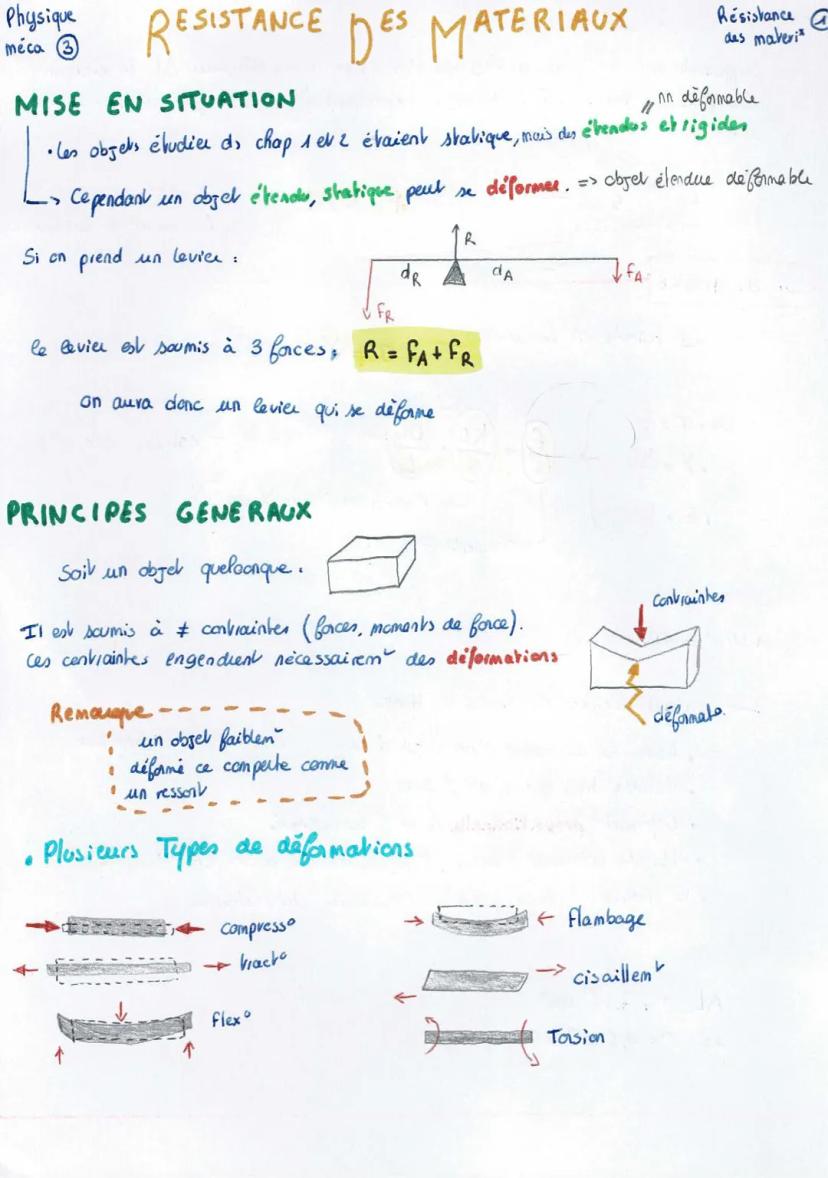 Physique
méca ③
RESISTANCE DES MATERIAUX
Résistance ①
des materi˟
MISE EN SITUATION
// nn déformable
• Les objets étudier ds chap 1 et 2 étaient statique, mais des étendus et rigides
↳ Cependant un objet étendu, statique peut se déformer. => objet étendue déformable
Si on prend un levier :
R
dR
dA
FA
FR
le levier est soumis à 3 forces, R = FA + FR
on aura donc un levier qui se déforme
PRINCIPES GENERAUX
Soit un objet quelconque.
Il est soumis à ≠ contraintes (forces, moments de force).
Ces contraintes engendrent nécessairemt des déformations
Contraintes
déformato.
Remarque
un objet faiblemt
déformé ce comporte comme
un ressort
• Plusieurs Types de déformations
compress°
tract°
flex°
flambage
cisaillemt
Torsion